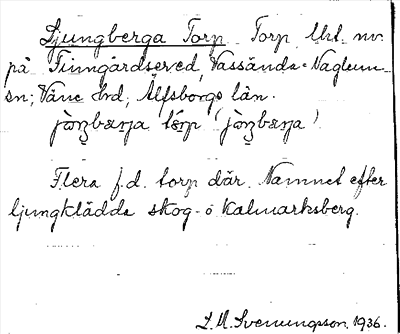 Ljungberga Torp Torp Utt. nv.
på Finngårdser,ed, Vassända-Naglum-
sn; Väne hrd, Älfsborgs län.
tǻrp
Flera f.d. torp där. Namnet efter
ljungklädda skog- o kalmarksberg.
L. M. Svenungsson, 1936.